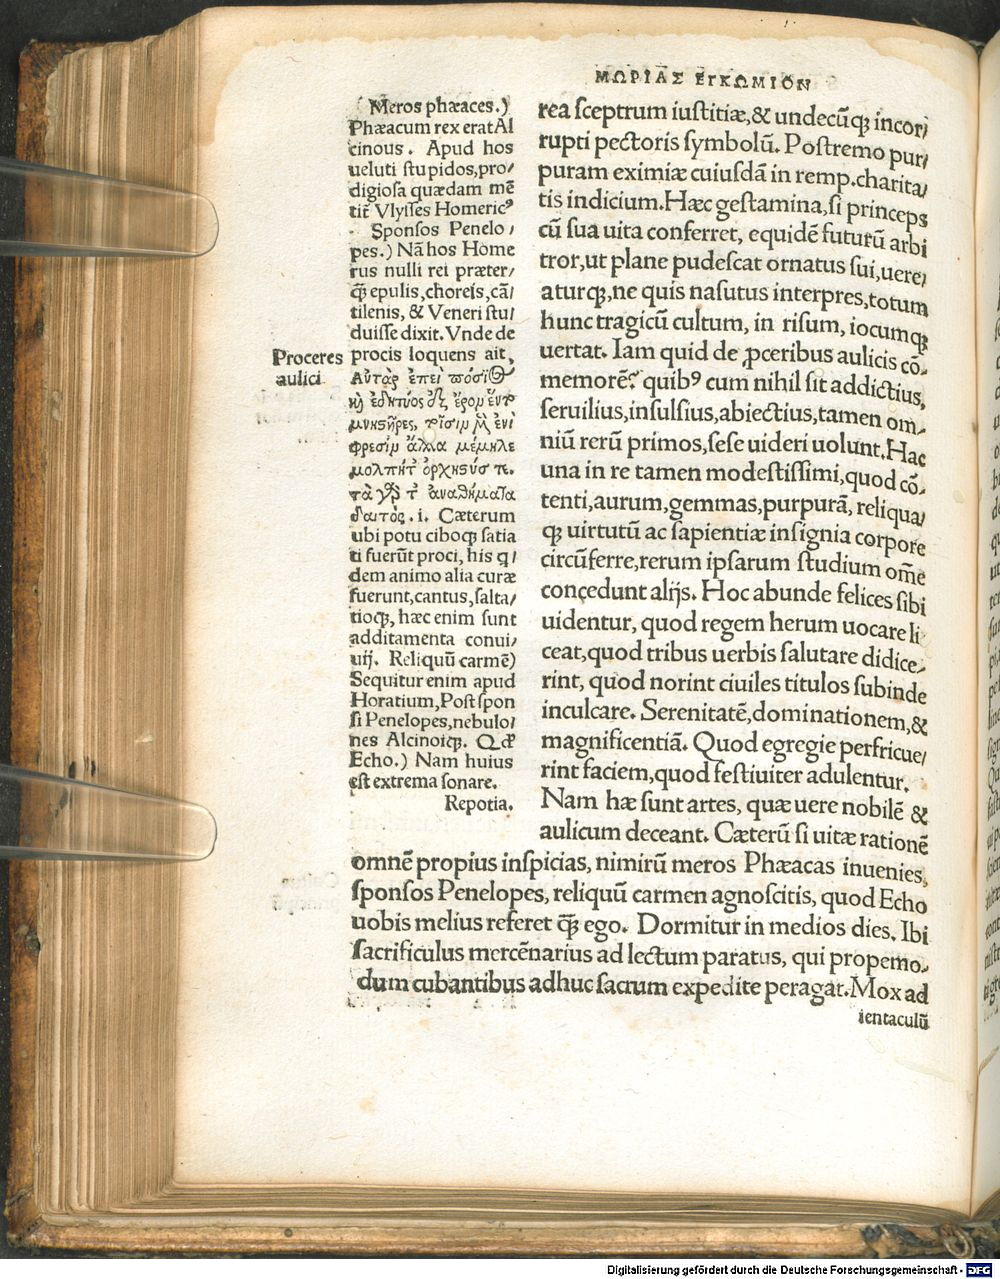 ΜΩΡΙΑΣ ΕΓΚΩΜΙΟΝ
(Meros phæaces.)
Phæacum rex erat Al
cinous. Apud hos
ueluti stupidos,pro/
digiosa quædam mē
tit᷑ Vlysses Homericꝰ
Sponsos Penelo/
pes.) Nā hos Home
rus nulli rei præter/
q̄ꝫ epulis,choreis,cā/
tilenis, & Veneri stu/
duisse dixit. Vnde de
procis loquens ait,
Αὐτὰρ ἐπεὶ πόσιος
καὶ ἐδητύος ἐξ ἔρον ἕντο
μνηστῆρες, τοῖσιν μὲν ἐνὶ
φρεσὶν ἄλλα μέμηλε
μολπήτ᾽ ὀρχηστύς τε.
τὰ γάρ τ᾽ ἀναθήματα
δαιτός.i. Cæterum
ubi potu ciboqꝫ satia
ti fuerūt proci, his q/
dem animo alia curæ
fuerunt,cantus,salta/
tioqꝫ, hæc enim sunt
additamenta conui/
uij. Reliquū carmē)
Sequitur enim apud
Horatium,Post spon
si Penelopes,nebulo/
nes Alcinoiqꝫ. Qđ
Echo.) Nam huius
est extrema sonare.
Repotia.
Proceres
aulici
rea sceptrum iustitiæ,& undecūqꝫ incor/
rupti pectoris symbolū. Postremo pur/
puram eximiæ cuiusdā in remp.charita/
tis indicium.Hæc gestamina,si princeps
cū sua uita conferret, equidē futurū arbi
tror,ut plane pudescat ornatus sui,uere/
aturqꝫ,ne quis nasutus interpres,totum
hunc tragicū cultum, in risum, iocumqꝫ
uertat. Iam quid de ꝓceribus aulicis cō/
memorē? quibꝰ cum nihil sit addictius,
seruilius,insulsius,abiectius,tamen om/
niū rerū primos,sese uideri uolunt.Hac
una in re tamen modestissimi,quod cō/
tenti,aurum,gemmas,purpurā, reliqua/
qꝫ uirtutū ac sapientiæ insignia corpore
circūferre,rerum ipsarum studium om̄e
concedunt alijs. Hoc abunde felices sibi
uidentur, quod regem herum uocare li
ceat,quod tribus uerbis salutare didice/
rint, quod norint ciuiles titulos subinde
inculcare. Serenitatē,dominationem,&
magnificentiā. Quod egregie perfricue/
rint faciem,quod festiuiter adulentur.
Nam hæ sunt artes, quæ uere nobilē &
aulicum deceant. Cæterū si uitæ rationē
omnē propius inspicias, nimirū meros Phæacas inuenies,
sponsos Penelopes, reliquū carmen agnoscitis, quod Echo
uobis melius referet q̄ꝫ ego. Dormitur in medios dies. Ibi
sacrificulus mercēnarius ad lectum paratus, qui propemo/
dum cubantibus adhuc sacrum expedite peragat.Mox ad
ientaculū
Digitalisierung gefördert durch die Deutsche Forschungsgemeinschaft - DFG